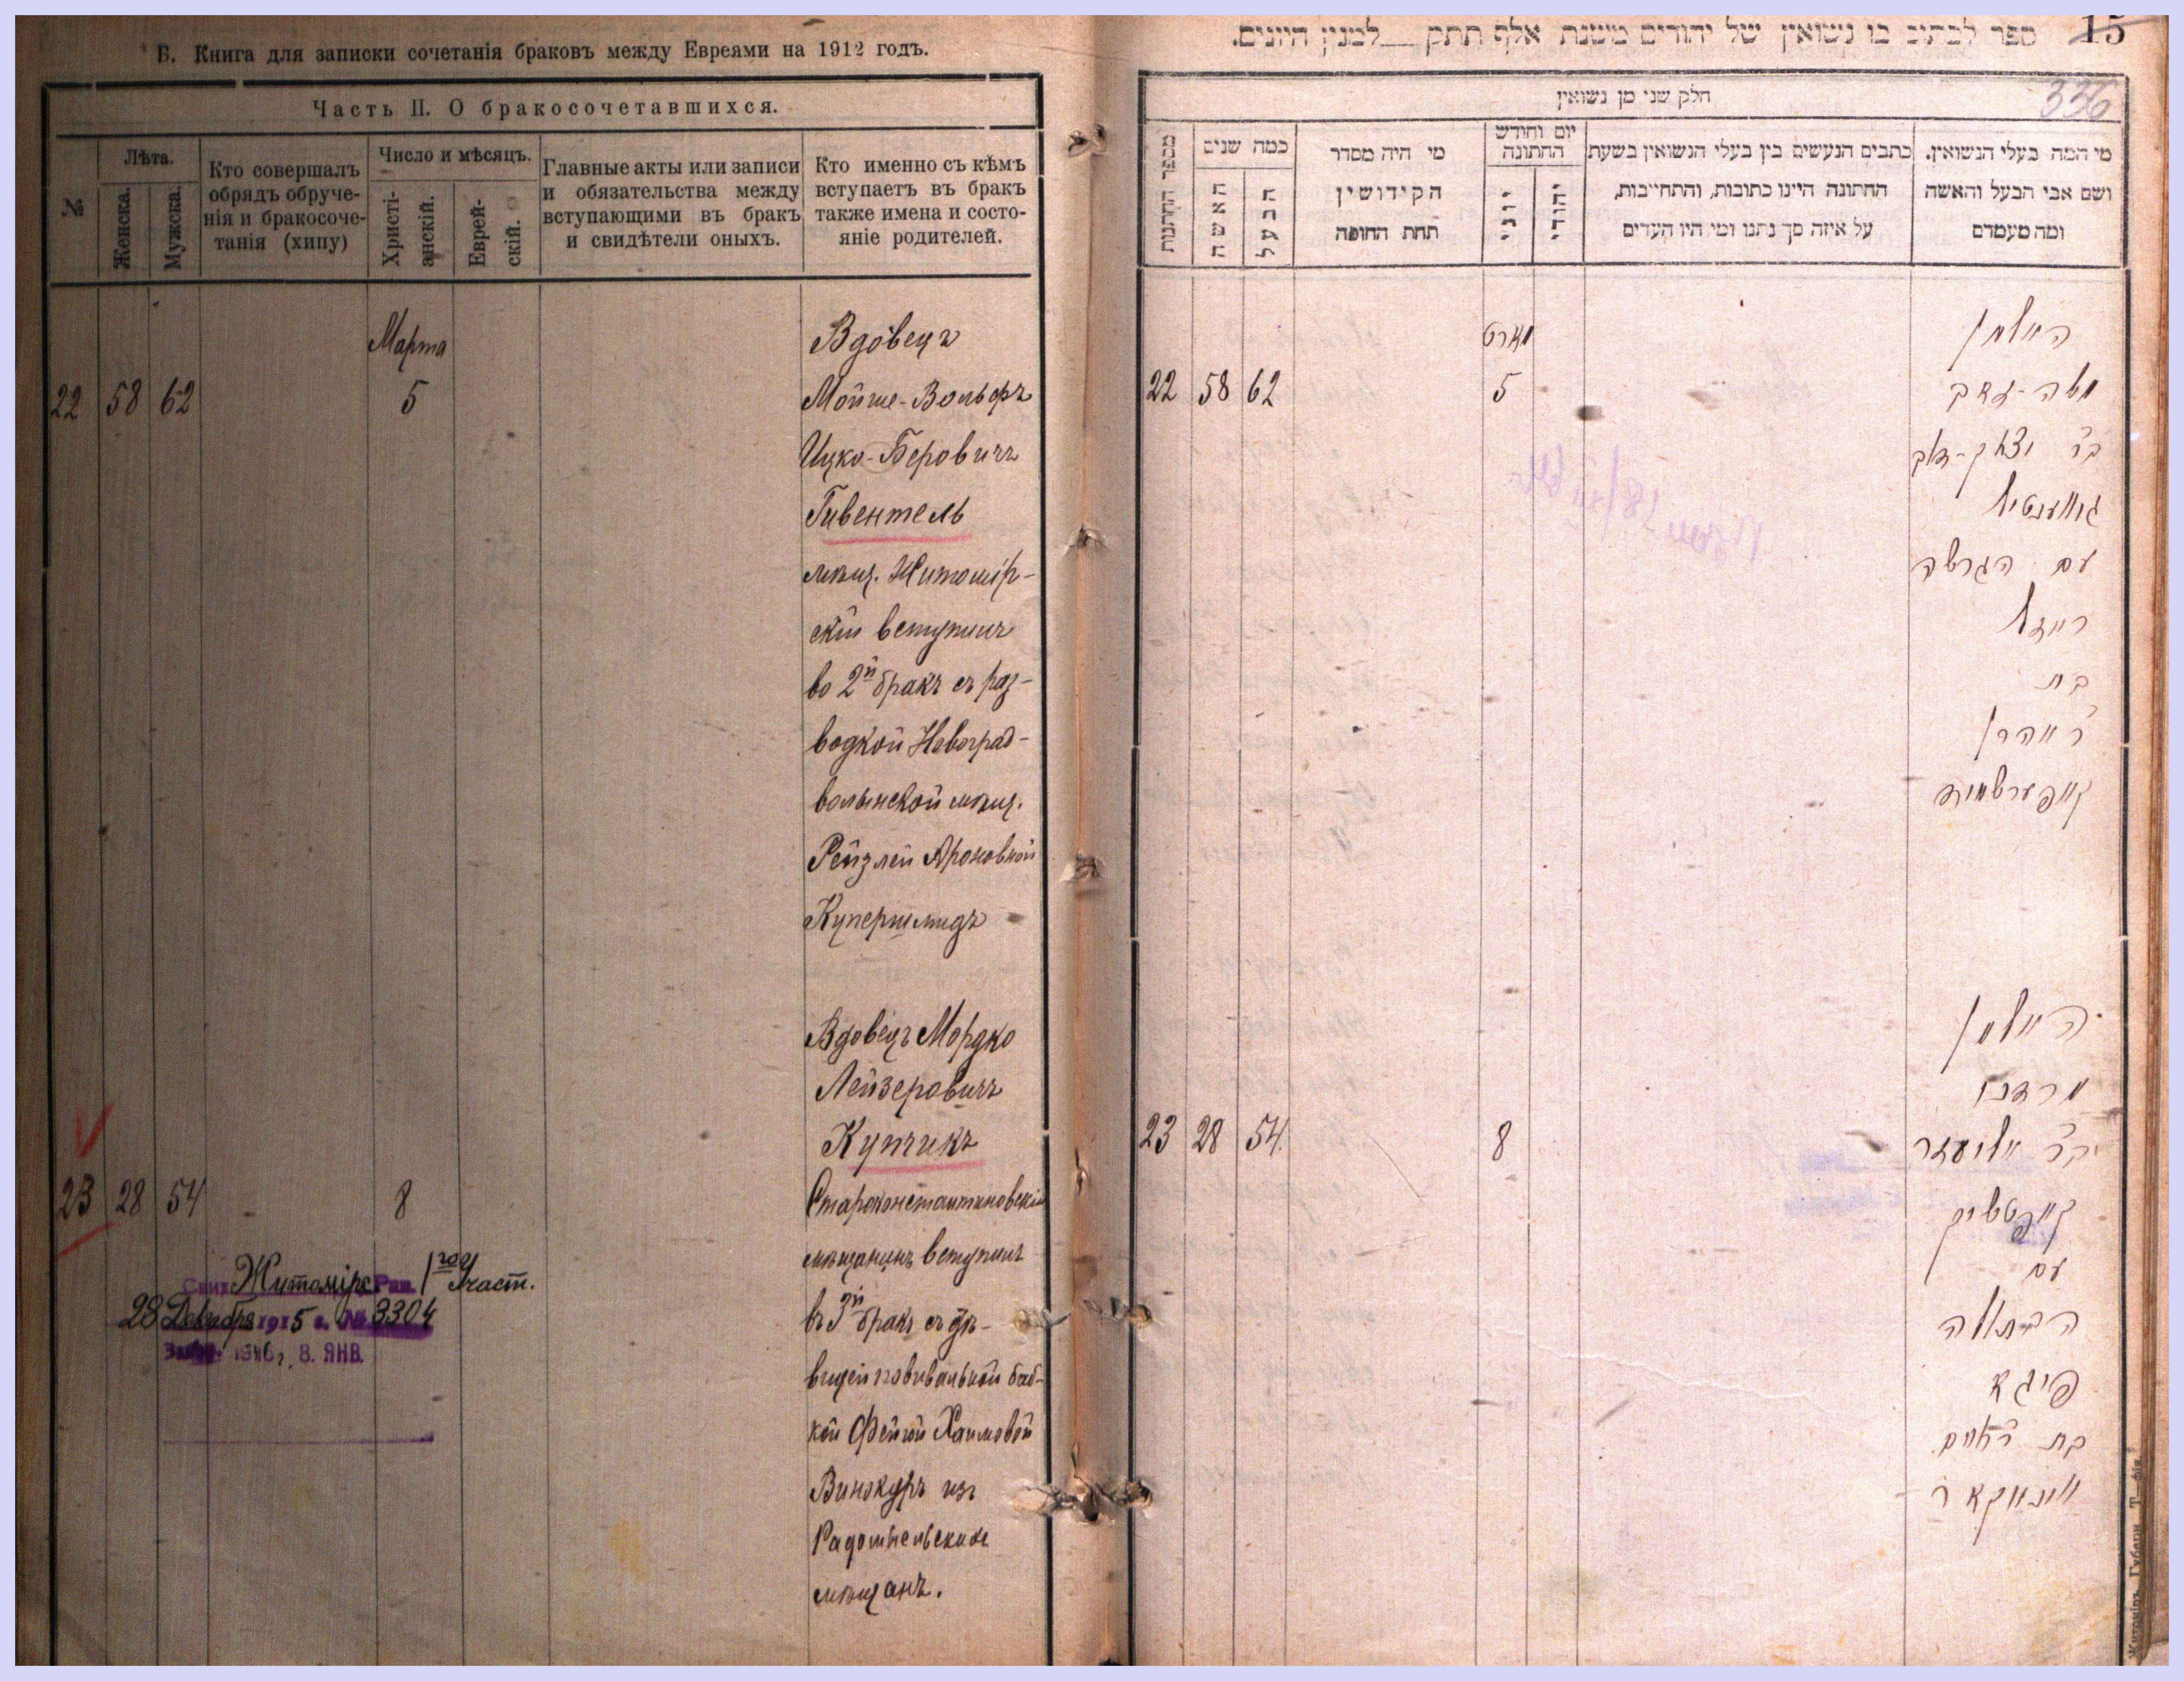 Б. Книга для записки сочетанія браковъ между Евреями на 1912 годъ.
Часть II. О бракосочетавшихся.
№
Лѣта.
Женска.
Мужска.
Кто совершалъ
обрядъ обруче-
нія и бракосоче-
танія (хипу)
Число и мѣсяцъ.
Христі-
анскій.
Еврей-
скій.
Главные акты или записи
и обязательства между
вступающими въ бракъ
и свидѣтели оныхъ.
Кто именно съ кѣмъ
вступаетъ въ бракъ
также имена и состо-
яніе родителей.
Марта
22 58 62 5
Вдовецъ
Мойше-Вольфъ
Ицко-Беровичъ
Гивентель
мѣщ. Житомір-
скій вступилъ
во 2й бракъ съ раз-
водкой Новоград-
волынской мѣщ.
Рейзлей Ароновной
Купершмидъ
23 28 54 8
Вдовецъ Мордко
Лейзеровичъ
Купчикъ
Староконстантиновскій
мѣщанинъ вступилъ
въ 3й бракъ съ дѣ-
вицей повивальной баб-
кой Фейгой Хаимовой
Винокуръ изъ
Радомысльскихъ
мѣщанъ.
Житомірс. Рав. 1го Участ.
28 Декабря 1915 г. № 3304
1916 г. 8. ЯНВ.
ספר לכתוב בו נשואין של יהודים משנת אלף תתק לסנין היונים.
15
336
חלק שני מן נשואין
מספר החתונות
כמה שנים
האשה
הבעל
מי היה מסדר
הקידושין
תחת החופה
יום וחודש
החתונה
יוני
יהודי
כתבים הנעשים בין בעלי הנשואין בשעת
החתונה היינו כתובות, והתחייבות,
על איזה סך נתנו ומי היו העדים
מי המה בעלי הנשואין.
ושם אבי הבעל והאשה
ומה מעמדם
מארט
22 58 62 5
האלמן
משה-זאב
ב"ר יצחק-דוב
גיווענטיל
עם הגרושה
רייזל
בת
ר' אהרן
קופערשמיד
23 28 54 8
האלמן
מרדכי
ב"ר אליעזר
קופטשיק
עם
הבתולה
פייגא
בת ר' חיים
ווינאקאר